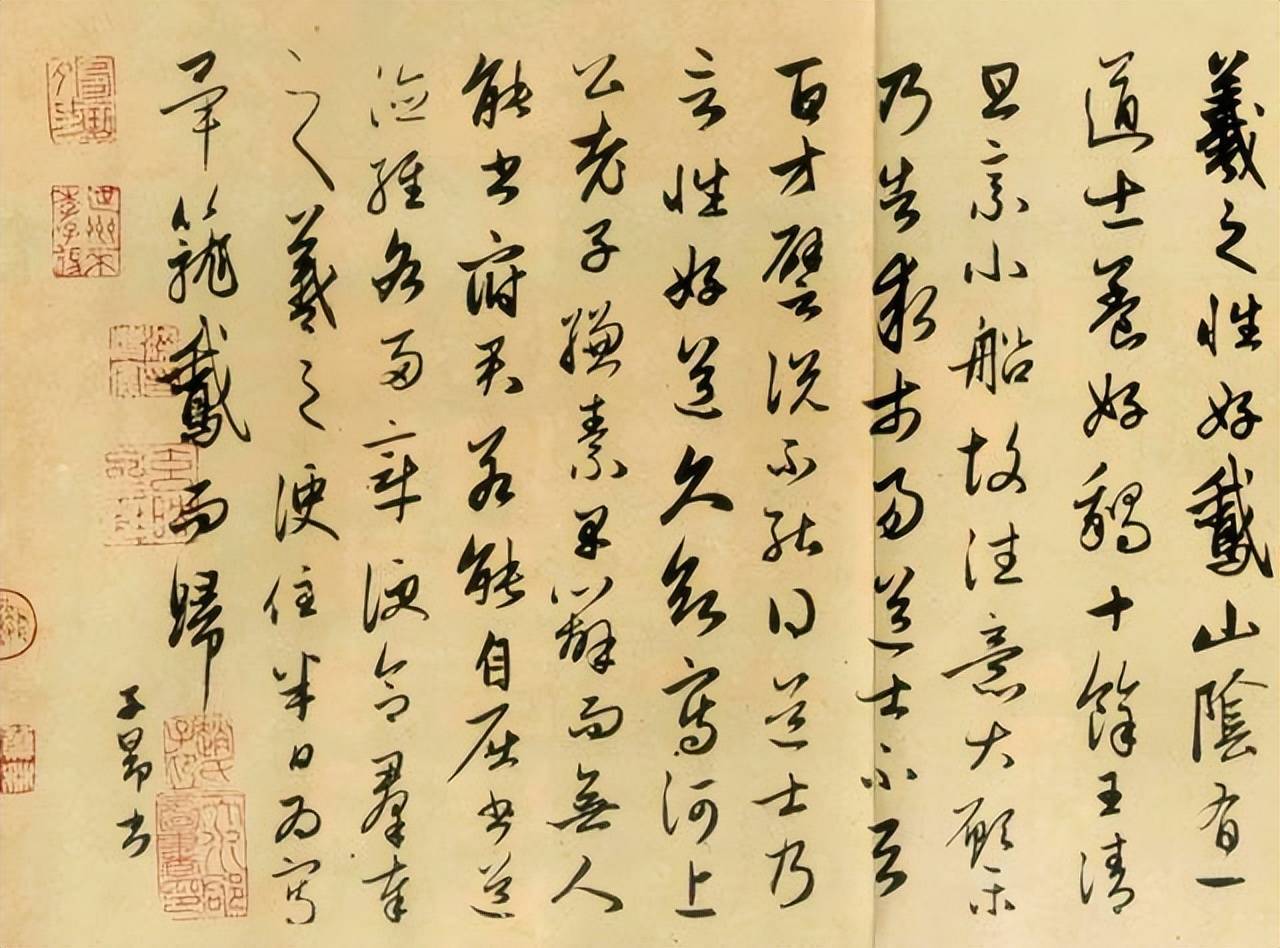 羲之性好鵞山陰有一
道士養好鵝十餘王清
旦乗小船故往意大願樂
乃告求市易道士不與
百方譬説不能得道士乃
言性好道久欲寫河上
公老子縑素早辦而無人
能書府君若能自屈書道
德經各兩章便合羣奉
之羲之便住半日為寫
畢籠鵞而歸
子昂書
趙氏子昂
天水郡圖書印